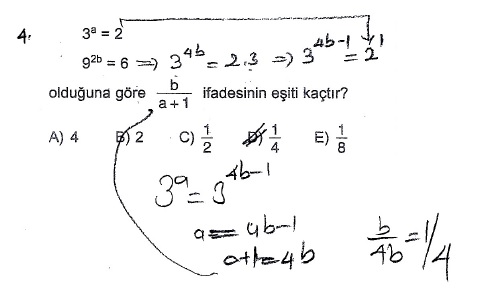 4. 3ᵃ = 2
9²ᵇ = 6 ⇒ 3⁴ᵇ = 2.3 ⇒ 3⁴ᵇ⁻¹ = 2¹
olduğuna göre b/(a+1) ifadesinin eşiti kaçtır?
A) 4 B) 2 C) 1/2 D) 1/4 E) 1/8
3ᵃ = 3⁴ᵇ⁻¹
a = 4b-1
a+1 = 4b
b/4b = 1/4